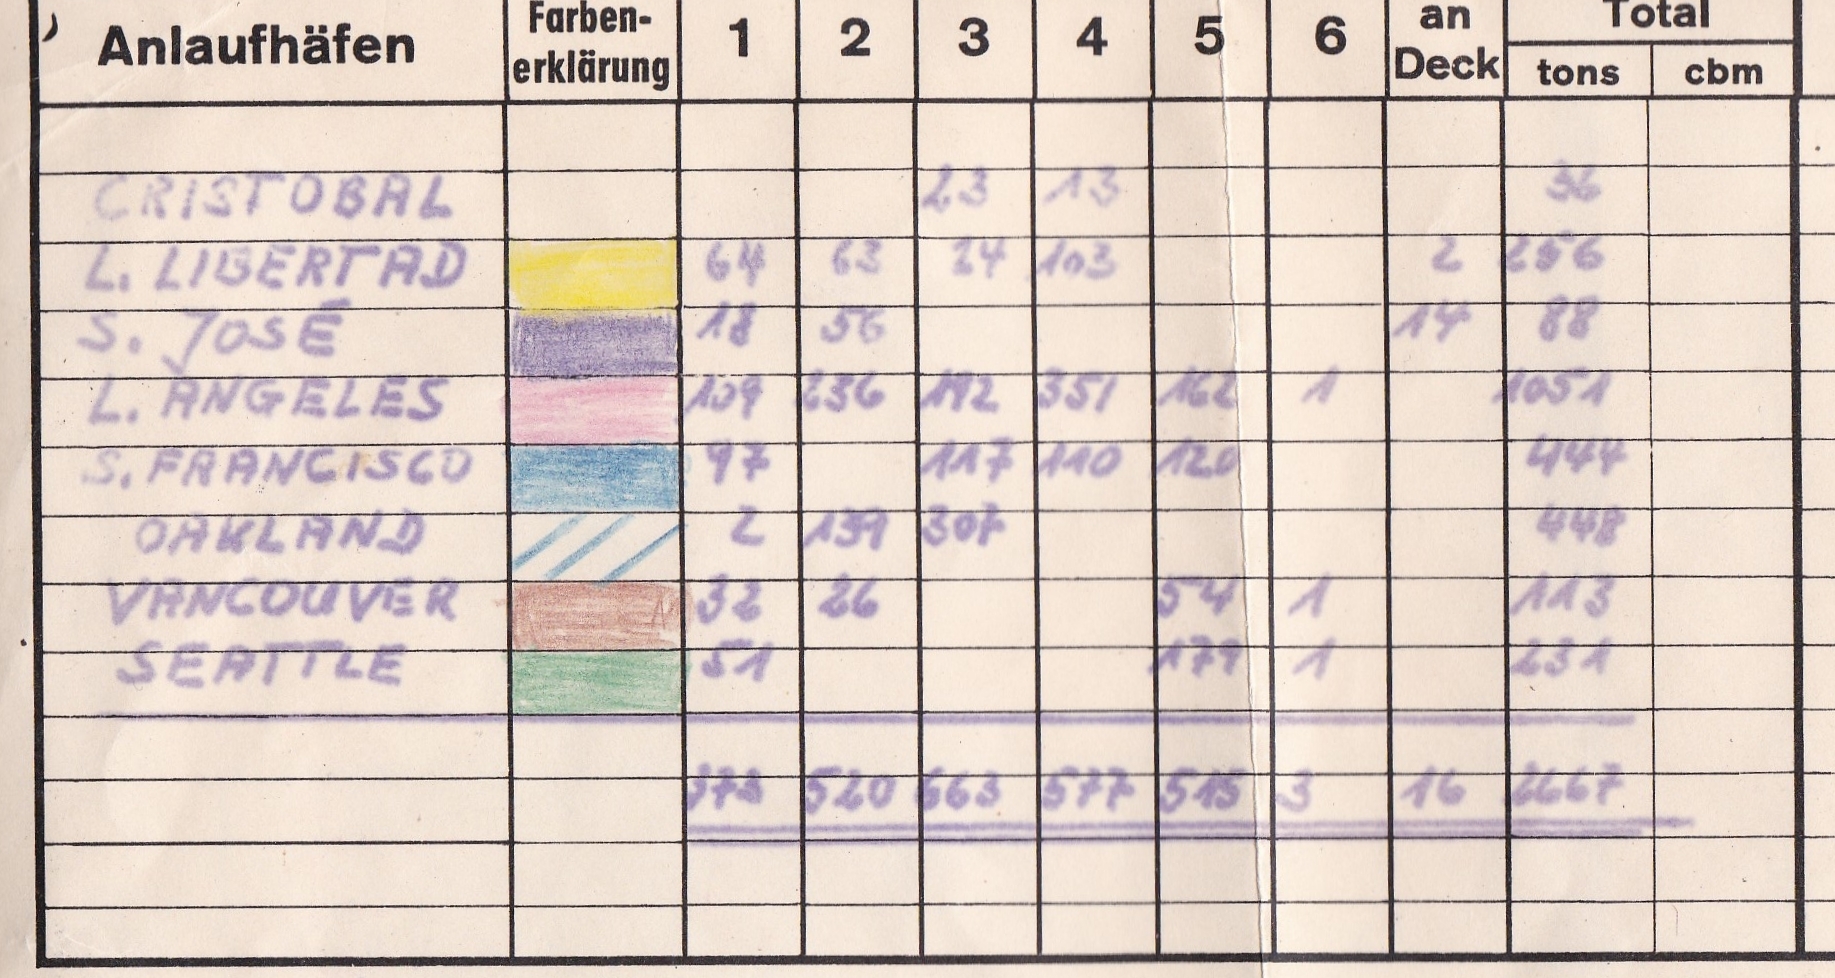 Anlaufhäfen Farben-erklärung 1 2 3 4 5 6 an Deck Total
tons cbm
CRISTOBAL 23 13 36
L. LIBERTAD 64 63 24 103 2 256
S. JOSÉ 18 56 14 88
L. ANGELES 109 236 192 351 162 1 1051
S. FRANCISCO 97 117 110 120 444
OAKLAND 2 139 307 448
VANCOUVER 32 26 54 1 113
SEATTLE 51 179 1 231
373 520 663 577 515 3 16 2667